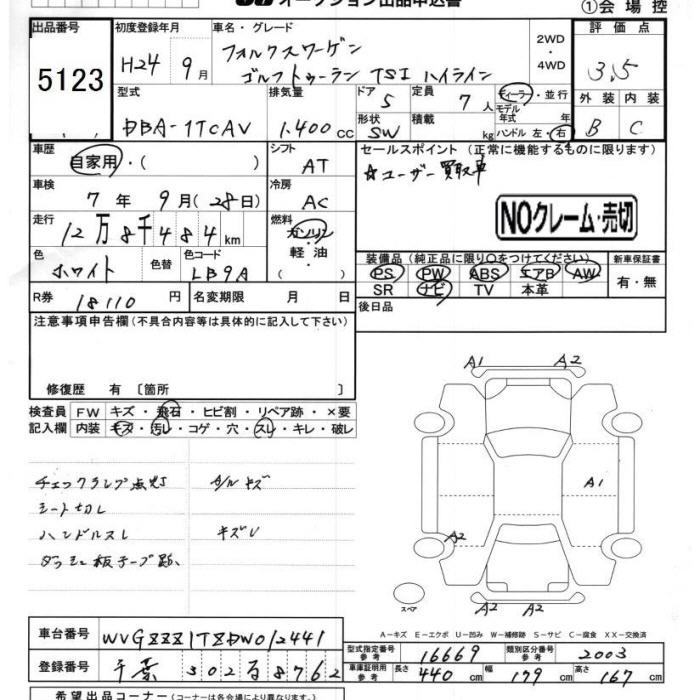 オークション出品申込書
①会場控
出品番号 初度登録年月 車名・グレード 2WD・4WD 評価点
5123 H24 9月 フォルクスワーゲン 3.5
ゴルフトゥーラン TSI ハイライン
型式 排気量 ドア 5 定員 7人 ディーラー・並行 外装 内装
モデル年式 年
DBA-1TCAV 1.400cc 形状 SW 積載 kg ハンドル 左・右 B C
車歴 シフト セールスポイント(正常に機能するものに限ります)
自家用・( ) AT ☆ユーザー買取車
車検 冷房
7年 9月(28日) AC NOクレーム・売切
走行 燃料
12万8千484km ガソリン・軽油
色 色替 色コード 装備品(純正品に限り○をつけてください) 新車保証書
ホワイト LB9A PS PW ABS エアB AW 有・無
SR ナビ TV 本革
R券 18110円 名変期限 月 日 後日品
注意事項申告欄(不具合内容等は具体的に記入して下さい)
修復歴 有 〔箇所 〕
検査員 FW キズ・飛石・ヒビ割・リペア跡・×要
記入欄 内装 キズ・汚レ・コゲ・穴・スレ・キレ・破レ
A1 A2
チェックランプ点灯 A/Wキズ
A1
シート切レ
ハンドルスレ キズU
A2
ダッシュ板テープ跡、
スペア
A2 A2
A−キズ E−エクボ U−凹み W−補修跡 S−サビ C−腐食 XX−交換済
車台番号 WVGZZZ1TZDW012441
型式指定番号 参考 16669 類別区分番号 参考 2003
登録番号 千葉 302 る 8762
車庫証明用 参考 長さ 440cm 幅 179cm 高さ 167cm
希望出品コーナー(コーナーは各会場により異なります)